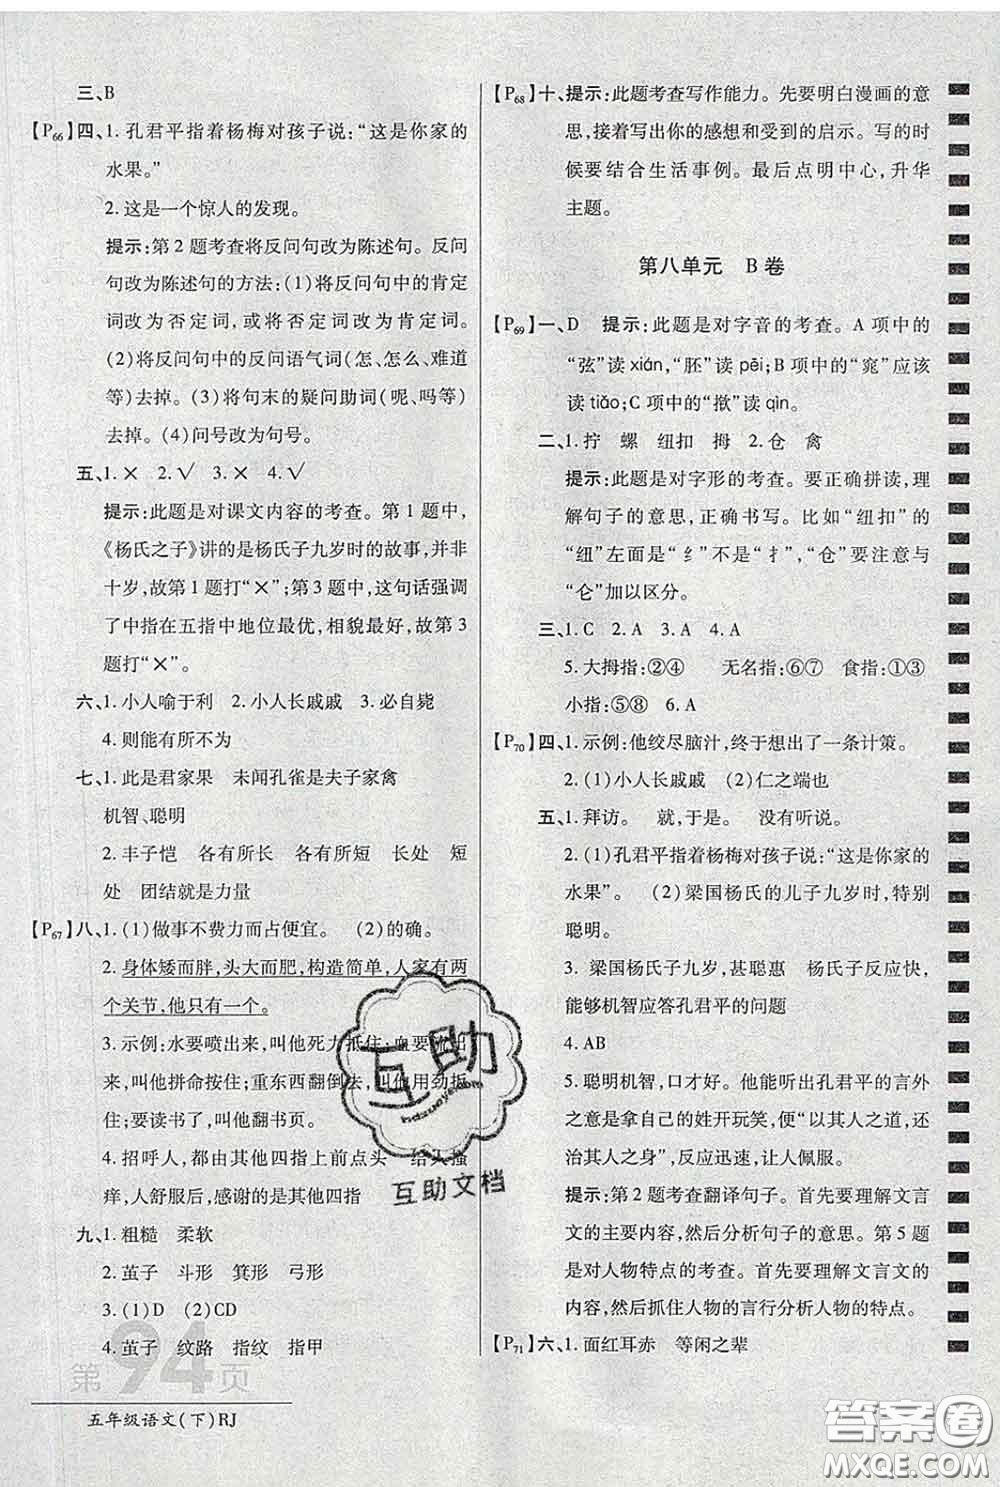 三、B
【P66】四、1. 孔君平指着杨梅对孩子说:“这是你家的
水果。”
2. 这是一个惊人的发现。
提示:第 2 题考查将反问句改为陈述句。反问
句改为陈述句的方法:(1)将反问句中的肯定
词改为否定词,或将否定词改为肯定词。
(2)将反问句中的反问语气词(怎、怎么、难道
等)去掉。(3)将句末的疑问助词(呢、吗等)
去掉。(4)问号改为句号。
五、1.× 2.√ 3.× 4.√
提示:此题是对课文内容的考查。第 1 题中,
《杨氏之子》讲的是杨氏子九岁时的故事,并非
十岁,故第 1 题打“×”;第 3 题中,这句话强调
了中指在五指中地位最优,相貌最好,故第 3
题打“×”。
六、1. 小人喻于利 2. 小人长戚戚 3. 必自毙
4. 则能有所不为
七、1. 此是君家果 未闻孔雀是夫子家禽
机智、聪明
2. 丰子恺 各有所长 各有所短 长处 短
处 团结就是力量
【P67】八、1. (1)做事不费力而占便宜。 (2)的确。
2. 身体矮而胖,头大而肥,构造简单,人家有两
个关节,他只有一个。
3. 示例:水要喷出来,叫他死力抵住;血要流出
来,叫他拼命按住;重东西翻倒去,叫他用劲扳
住;要读书了,叫他翻书页。
4. 招呼人,都由这四指上前点头 给人搔
痒,人舒服后,感谢的是其他四指
九、1. 粗糙 柔软
2. 茧子 斗形 箕形 弓形
3. (1)D (2)CD
4. 茧子 纹路 指纹 指甲
第94页
五年级语文(下)RJ
【P68】十、提示:此题考查写作能力。先要明白漫画的意
思,接着写出你的感想和受到的启示。写的时
候要结合生活事例。最后点明中心,升华
主题。
第八单元 B 卷
【P69】一、D 提示:此题是对字音的考查。A 项中的
“弦”读 xián,“胚”读 pēi;B 项中的“窕”应该
读 tiǎo;C 项中的“揿”读 qìn。
二、1. 拧 螺 纽扣 拇 2. 仓 禽
提示:此题是对字形的考查。要正确拼读,理
解句子的意思,正确书写。比如“纽扣”的
“纽”左面是“纟”不是“扌”,“仓”要注意与
“仑”加以区分。
三、1. C 2. A 3. A 4. A
5. 大拇指:②④ 无名指:⑥⑦ 食指:①③
小指:⑤⑧ 6. A
【P70】四、1. 示例:他绞尽脑汁,终于想出了一条计策。
2. (1)小人长戚戚 (2)仁之端也
五、1. 拜访。 就,于是。 没有听说。
2. (1)孔君平指着杨梅对孩子说:“这是你家的
水果”。 (2)梁国杨氏的儿子九岁时,特别
聪明。
3. 梁国杨氏子九岁,甚聪惠 杨氏子反应快,
能够机智应答孔君平的问题
4. AB
5. 聪明机智,口才好。他能听出孔君平的言外
之意是拿自己的姓开玩笑,便“以其人之道,还
治其人之身”,反应迅速,让人佩服。
提示:第 2 题考查翻译句子。首先要理解文言
文的主要内容,然后分析句子的意思。第 5 题
是对人物特点的考查。首先要理解文言文的
内容,然后抓住人物的言行分析人物的特点。
【P71】六、1. 面红耳赤 等闲之辈
互助
互助文档
答案圈
MXQE.COM